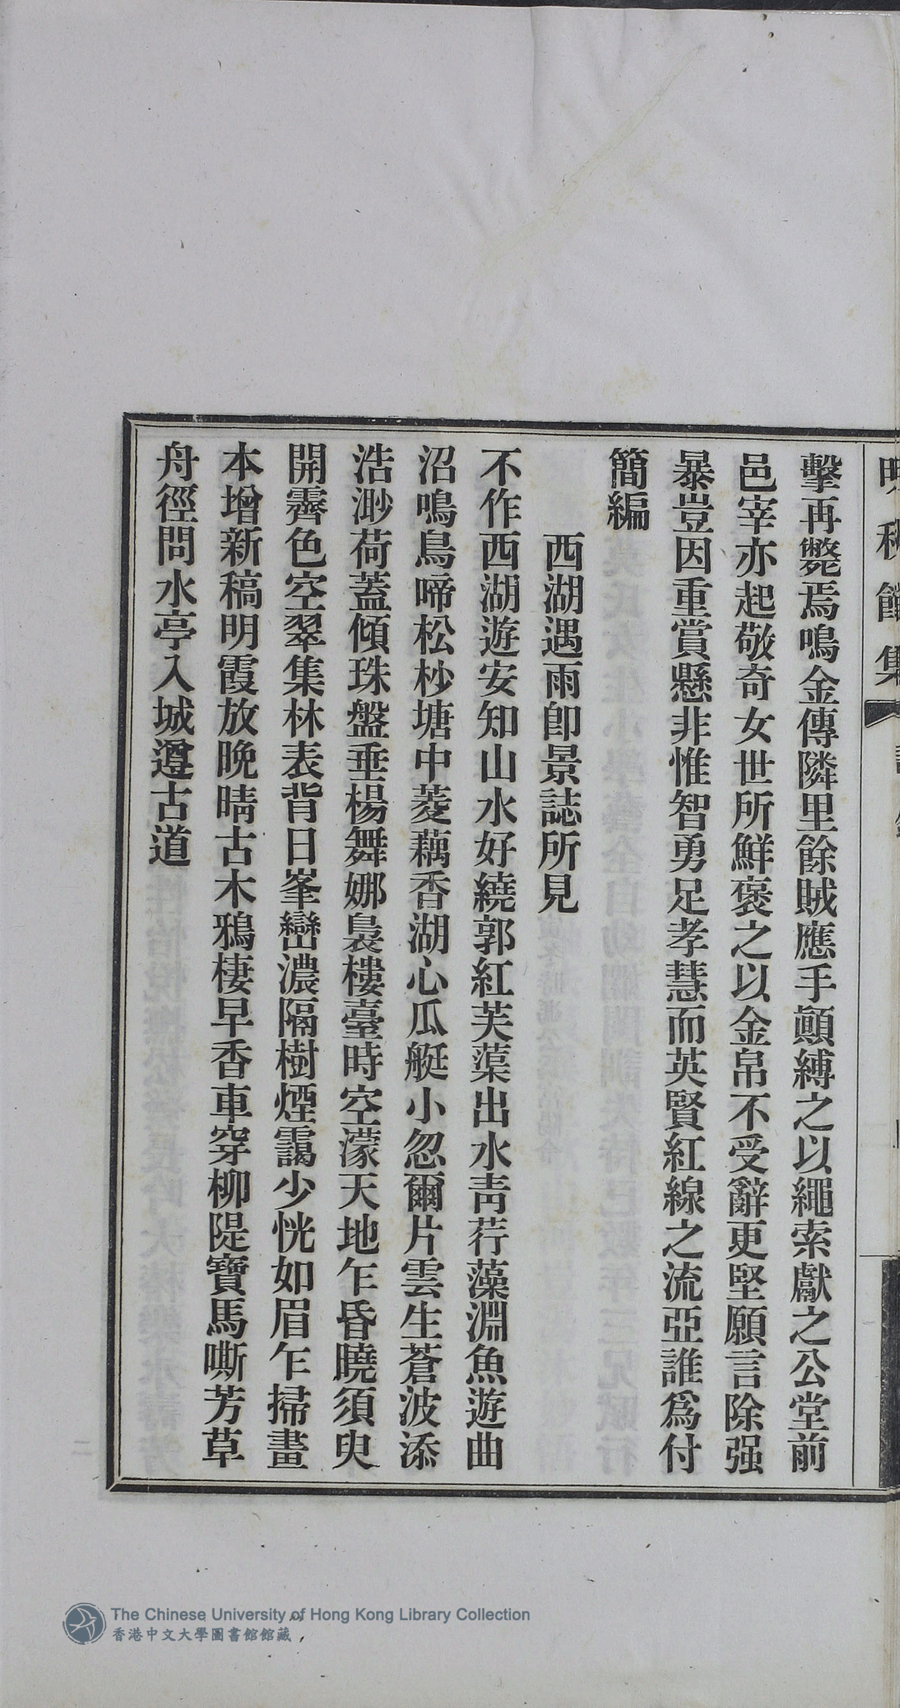 擊再斃焉鳴金傳隣里餘賊應手顚縛之以繩索獻之公堂前
邑宰亦起敬奇女世所鮮褒之以金帛不受辭更堅願言除强
暴豈因重賞懸非惟智勇足孝慧而英賢紅線之流亞誰爲付
簡編
西湖遇雨卽景誌所見
不作西湖遊安知山水好繞郭紅芙蕖出水靑荇藻淵魚遊曲
沼鳴鳥啼松杪塘中菱藕香湖心瓜艇小忽爾片雲生蒼波添
浩渺荷蓋傾珠盤垂楊舞娜裊樓臺時空濛天地乍昏曉須臾
開霽色空翠集林表背日峯巒濃隔樹煙靄少恍如眉乍掃畫
本增新稿明霞放晚晴古木鴉棲早香車穿柳隄寶馬嘶芳草
舟徑問水亭入城遵古道
The Chinese University of Hong Kong Library Collection
香港中文大學圖書館館藏